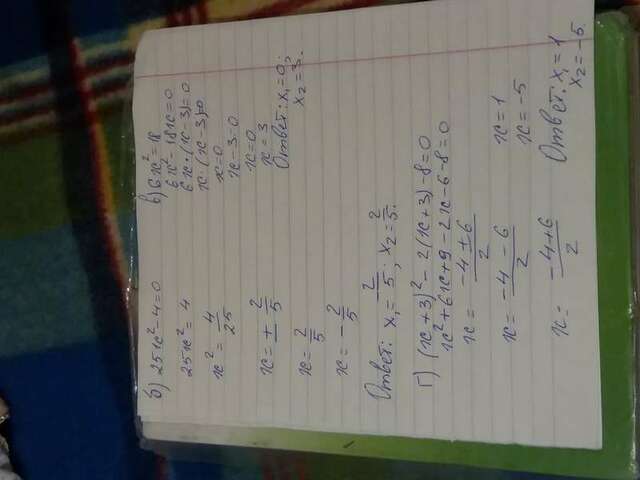 б) 25x² - 4 = 0
25x² = 4
x² = 4/25
x = ± 2/5
x = 2/5
x = - 2/5
Ответ: x₁ = - 2/5 ; x₂ = 2/5.
в) 6x² = 18
6x² - 18x = 0
6x · (x - 3) = 0
x · (x - 3) = 0
x = 0
x - 3 = 0
x = 0
x = 3
Ответ: x₁ = 0;
x₂ = 3.
г) (x + 3)² - 2(x + 3) - 8 = 0
x² + 6x + 9 - 2x - 6 - 8 = 0
x = (-4 ± 6)/2
x = (-4 - 6)/2
x = (-4 + 6)/2
x = 1
x = -5
Ответ: x₁ = 1
x₂ = -5